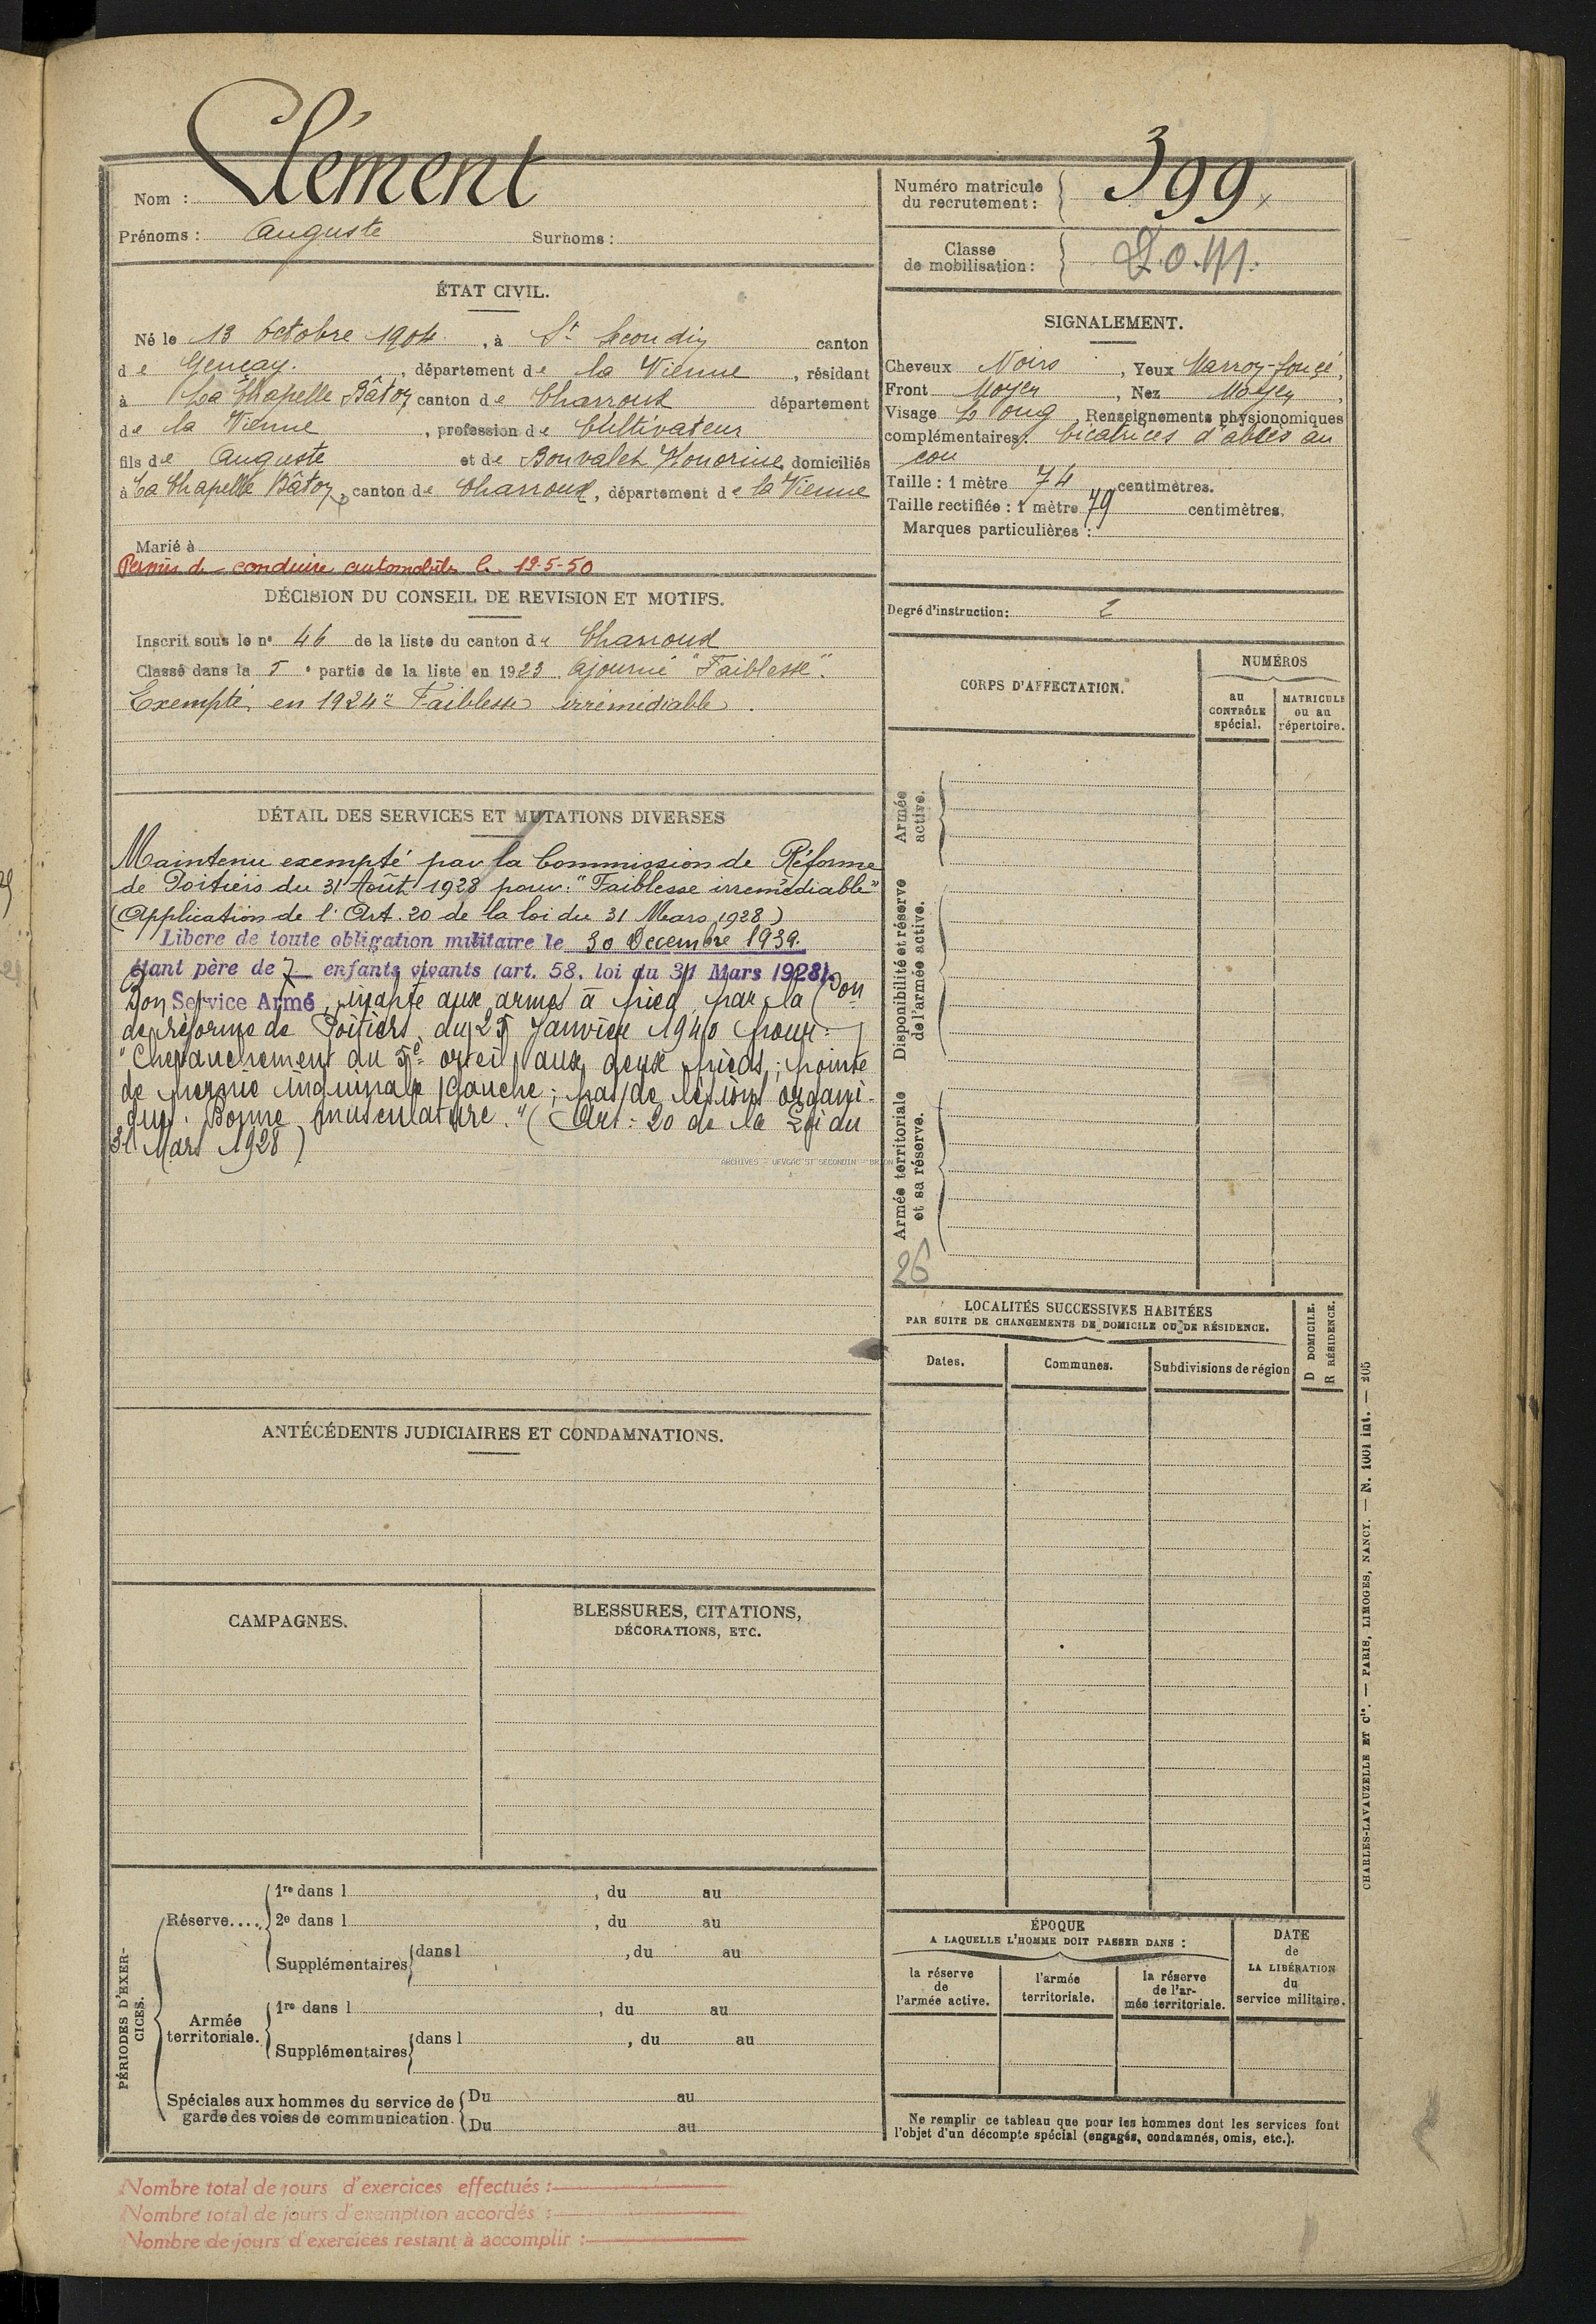 Nom : Clément
Prénoms : Auguste Surnoms :
Numéro matricule
du recrutement : 399
Classe
de mobilisation : D.O.M.
ÉTAT CIVIL.
Né le 13 Octobre 1904, à St Secondin canton
de Gençay., département de la Vienne, résidant
à La Chapelle Bâton, canton de Charroux département
de la Vienne, profession de Cultivateur
fils de Auguste et de Bonvalet Honorine, domiciliés
à La Chapelle Bâton, canton de Charroux, département de la Vienne
Marié à
Permis de conduire automobiles le 19-5-50
DÉCISION DU CONSEIL DE REVISION ET MOTIFS.
Inscrit sous le n° 46 de la liste du canton de Charroux
Classé dans la 5e partie de la liste en 1923. Ajourné "Faiblesse".
Exempté en 1924 "Faiblesse irrémédiable".
DÉTAIL DES SERVICES ET MUTATIONS DIVERSES
Maintenu exempté par la Commission de Réforme
de Poitiers du 31 Août 1928 pour : "Faiblesse irrémédiable"
(Application de l'Art. 20 de la loi du 31 Mars 1928)
Libéré de toute obligation militaire le 30 Décembre 1939.
étant père de 7 enfants vivants (art. 58, loi du 31 Mars 1928).
Bon Service Armé, inapte aux armes à pied par la Con
de réforme de Poitiers du 25 Janvier 1940 pour :
"Chevauchement du 5e orteil aux deux pieds ; pointe
de hernie inguinale gauche ; pas de lésions organi-
ques. Bonne musculature." (Art : 20 de la Loi du
31 Mars 1928)
ARCHIVES - UFVGAC ST SECONDIN - BRION
ANTÉCÉDENTS JUDICIAIRES ET CONDAMNATIONS.
CAMPAGNES.
BLESSURES, CITATIONS,
DÉCORATIONS, ETC.
PÉRIODES D'EXER-
CICES.
Réserve....
1re dans l , du au
2e dans l , du au
Supplémentaires dans l , du au
Armée
territoriale.
1re dans l , du au
Supplémentaires dans l , du au
Spéciales aux hommes du service de
garde des voies de communication.
Du au
Du au
SIGNALEMENT.
Cheveux Noirs, Yeux Marron-foncé,
Front Moyen, Nez Moyen,
Visage Long, Renseignements physionomiques
complémentaires : Cicatrices d'abcès au
cou
Taille : 1 mètre 74 centimètres.
Taille rectifiée : 1 mètre 79 centimètres.
Marques particulières :
Degré d'instruction : 2
CORPS D'AFFECTATION.
NUMÉROS
au
CONTRÔLE
spécial.
MATRICULE
ou au
répertoire.
Armée
active.
Disponibilité et réserve
de l'armée active.
Armée territoriale
et sa réserve.
26
LOCALITÉS SUCCESSIVES HABITÉES
PAR SUITE DE CHANGEMENTS DE DOMICILE OU DE RÉSIDENCE.
Dates.
Communes.
Subdivisions de région
D DOMICILE.
R RÉSIDENCE.
ÉPOQUE
A LAQUELLE L'HOMME DOIT PASSER DANS :
la réserve
de
l'armée active.
l'armée
territoriale.
la réserve
de l'ar-
mée territoriale.
DATE
de
LA LIBÉRATION
du
service militaire.
Ne remplir ce tableau que pour les hommes dont les services font
l'objet d'un décompte spécial (engagés, condamnés, omis, etc.).
CHARLES-LAVAUZELLE ET Cie. — PARIS, LIMOGES, NANCY. — N. 1001 int. — 205
Nombre total de jours d'exercices effectués :
Nombre total de jours d'exemption accordés :
Nombre de jours d'exercices restant à accomplir :